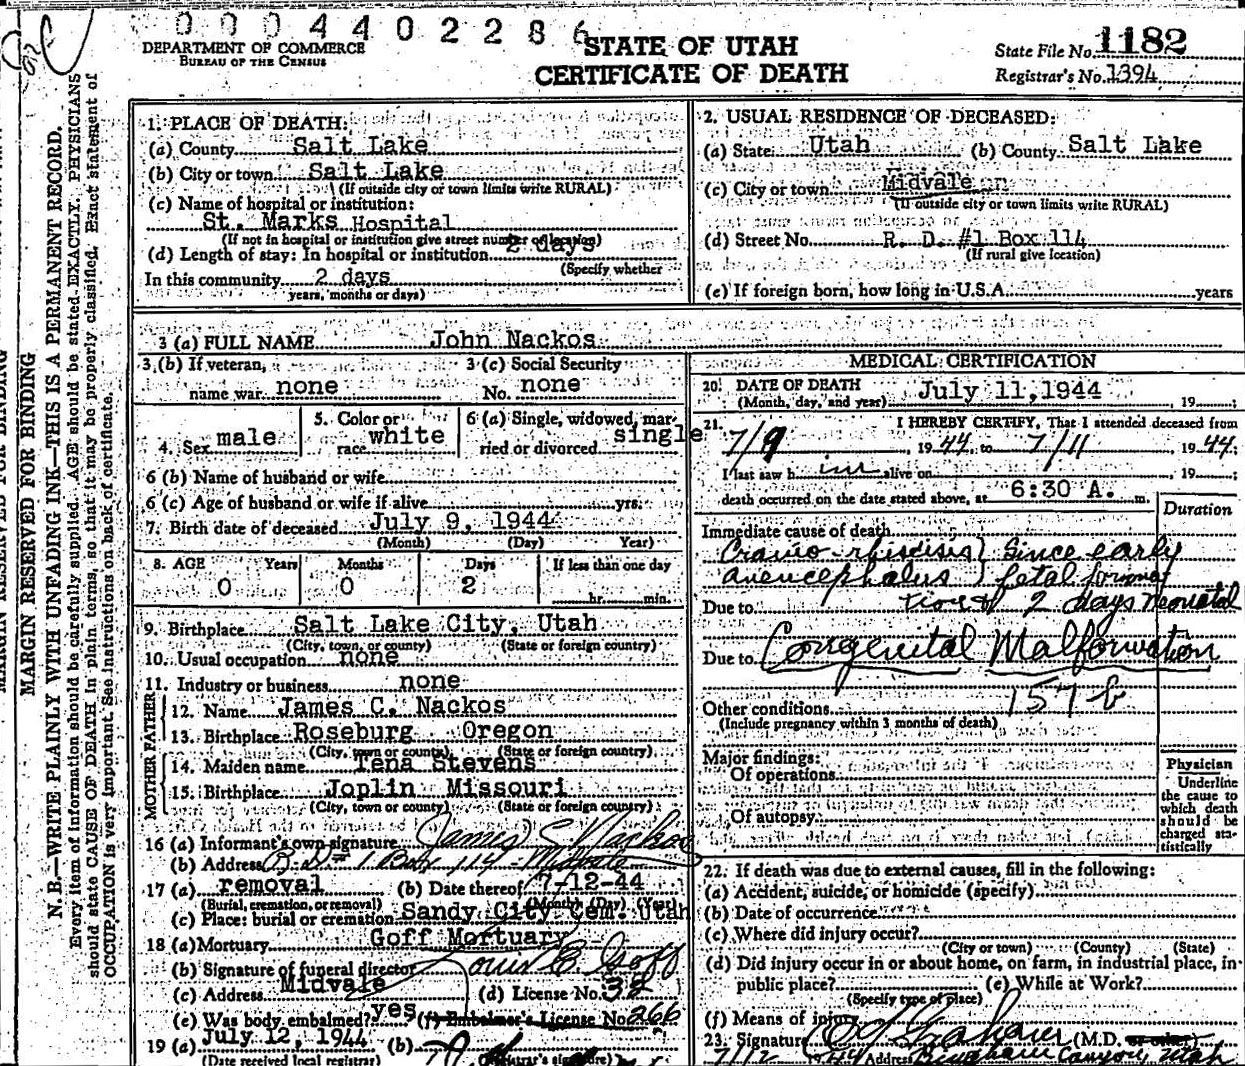 0004402286
DEPARTMENT OF COMMERCE
BUREAU OF THE CENSUS
STATE OF UTAH
CERTIFICATE OF DEATH
State File No. 1182
Registrar's No. 1394
MARGIN RESERVED FOR BINDING
N. B.—WRITE PLAINLY WITH UNFADING INK—THIS IS A PERMANENT RECORD.
Every item of information should be carefully supplied. AGE should be stated EXACTLY. PHYSICIANS
should state CAUSE OF DEATH in plain terms, so that it may be properly classified. Exact statement of
OCCUPATION is very important. See instructions on back of certificate.
1. PLACE OF DEATH:
(a) County Salt Lake
(b) City or town Salt Lake
(If outside city or town limits write RURAL)
(c) Name of hospital or institution:
St. Marks Hospital
(If not in hospital or institution give street number or location)
(d) Length of stay: In hospital or institution 2 days
(Specify whether
In this community 2 days
years, months or days)
2. USUAL RESIDENCE OF DECEASED:
(a) State Utah (b) County Salt Lake
(c) City or town Midvale
(If outside city or town limits write RURAL)
(d) Street No. R. D. #1 Box 114
(If rural give location)
(e) If foreign born, how long in U.S.A. years
3 (a) FULL NAME John Nackos
3 (b) If veteran, name war none
3 (c) Social Security No. none
4. Sex male
5. Color or race white
6 (a) Single, widowed, married or divorced single
6 (b) Name of husband or wife
6 (c) Age of husband or wife if alive yrs.
7. Birth date of deceased July 9, 1944
(Month) (Day) Year)
8. AGE Years Months Days If less than one day
0 0 2 hr. min.
9. Birthplace Salt Lake City, Utah
(City, town, or county) (State or foreign country)
10. Usual occupation none
11. Industry or business none
FATHER
12. Name James C. Nackos
13. Birthplace Roseburg Oregon
(City, town or county) (State or foreign country)
MOTHER
14. Maiden name Tena Stevens
15. Birthplace Joplin Missouri
(City, town or county) (State or foreign country)
16 (a) Informant's own signature James Nackos
(b) Address R. D. # 1 Box 114 - Midvale
17 (a) removal (b) Date thereof 7-12-44
(Burial, cremation, or removal) (Month) (Day) (Year)
(c) Place: burial or cremation Sandy City Cem. Utah
18 (a) Mortuary Goff Mortuary
(b) Signature of funeral director Louis B Goff
(c) Address Midvale (d) License No. 32
(e) Was body embalmed? yes (f) Embalmer's License No. 266
19 (a) July 12, 1944 (b)
(Date received local registrar) (Registrar's signature)
MEDICAL CERTIFICATION
20. DATE OF DEATH July 11, 1944, 19 ;
(Month, day, and year)
21. I HEREBY CERTIFY, That I attended deceased from
7/9, 1944, to 7/11, 1944;
I last saw h im alive on , 19 ;
death occurred on the date stated above, at 6:30 A. m.
Duration
Immediate cause of death
Since early
anencephalus } fetal forma
Due to tion & 2 days neonatal
Due to Congenital Malformation
Other conditions 157 b
(Include pregnancy within 3 months of death)
Major findings:
Of operations
Of autopsy
Physician
Underline
the cause to
which death
should be
charged sta-
tistically
22. If death was due to external causes, fill in the following:
(a) Accident, suicide, or homicide (specify)
(b) Date of occurrence
(c) Where did injury occur?
(City or town) (County) (State)
(d) Did injury occur in or about home, on farm, in industrial place, in
public place? (e) While at Work?
(Specify type of place)
(f) Means of injury
23. Signature (M.D. or other)
7/12 44 Address Bingham Canyon, Utah